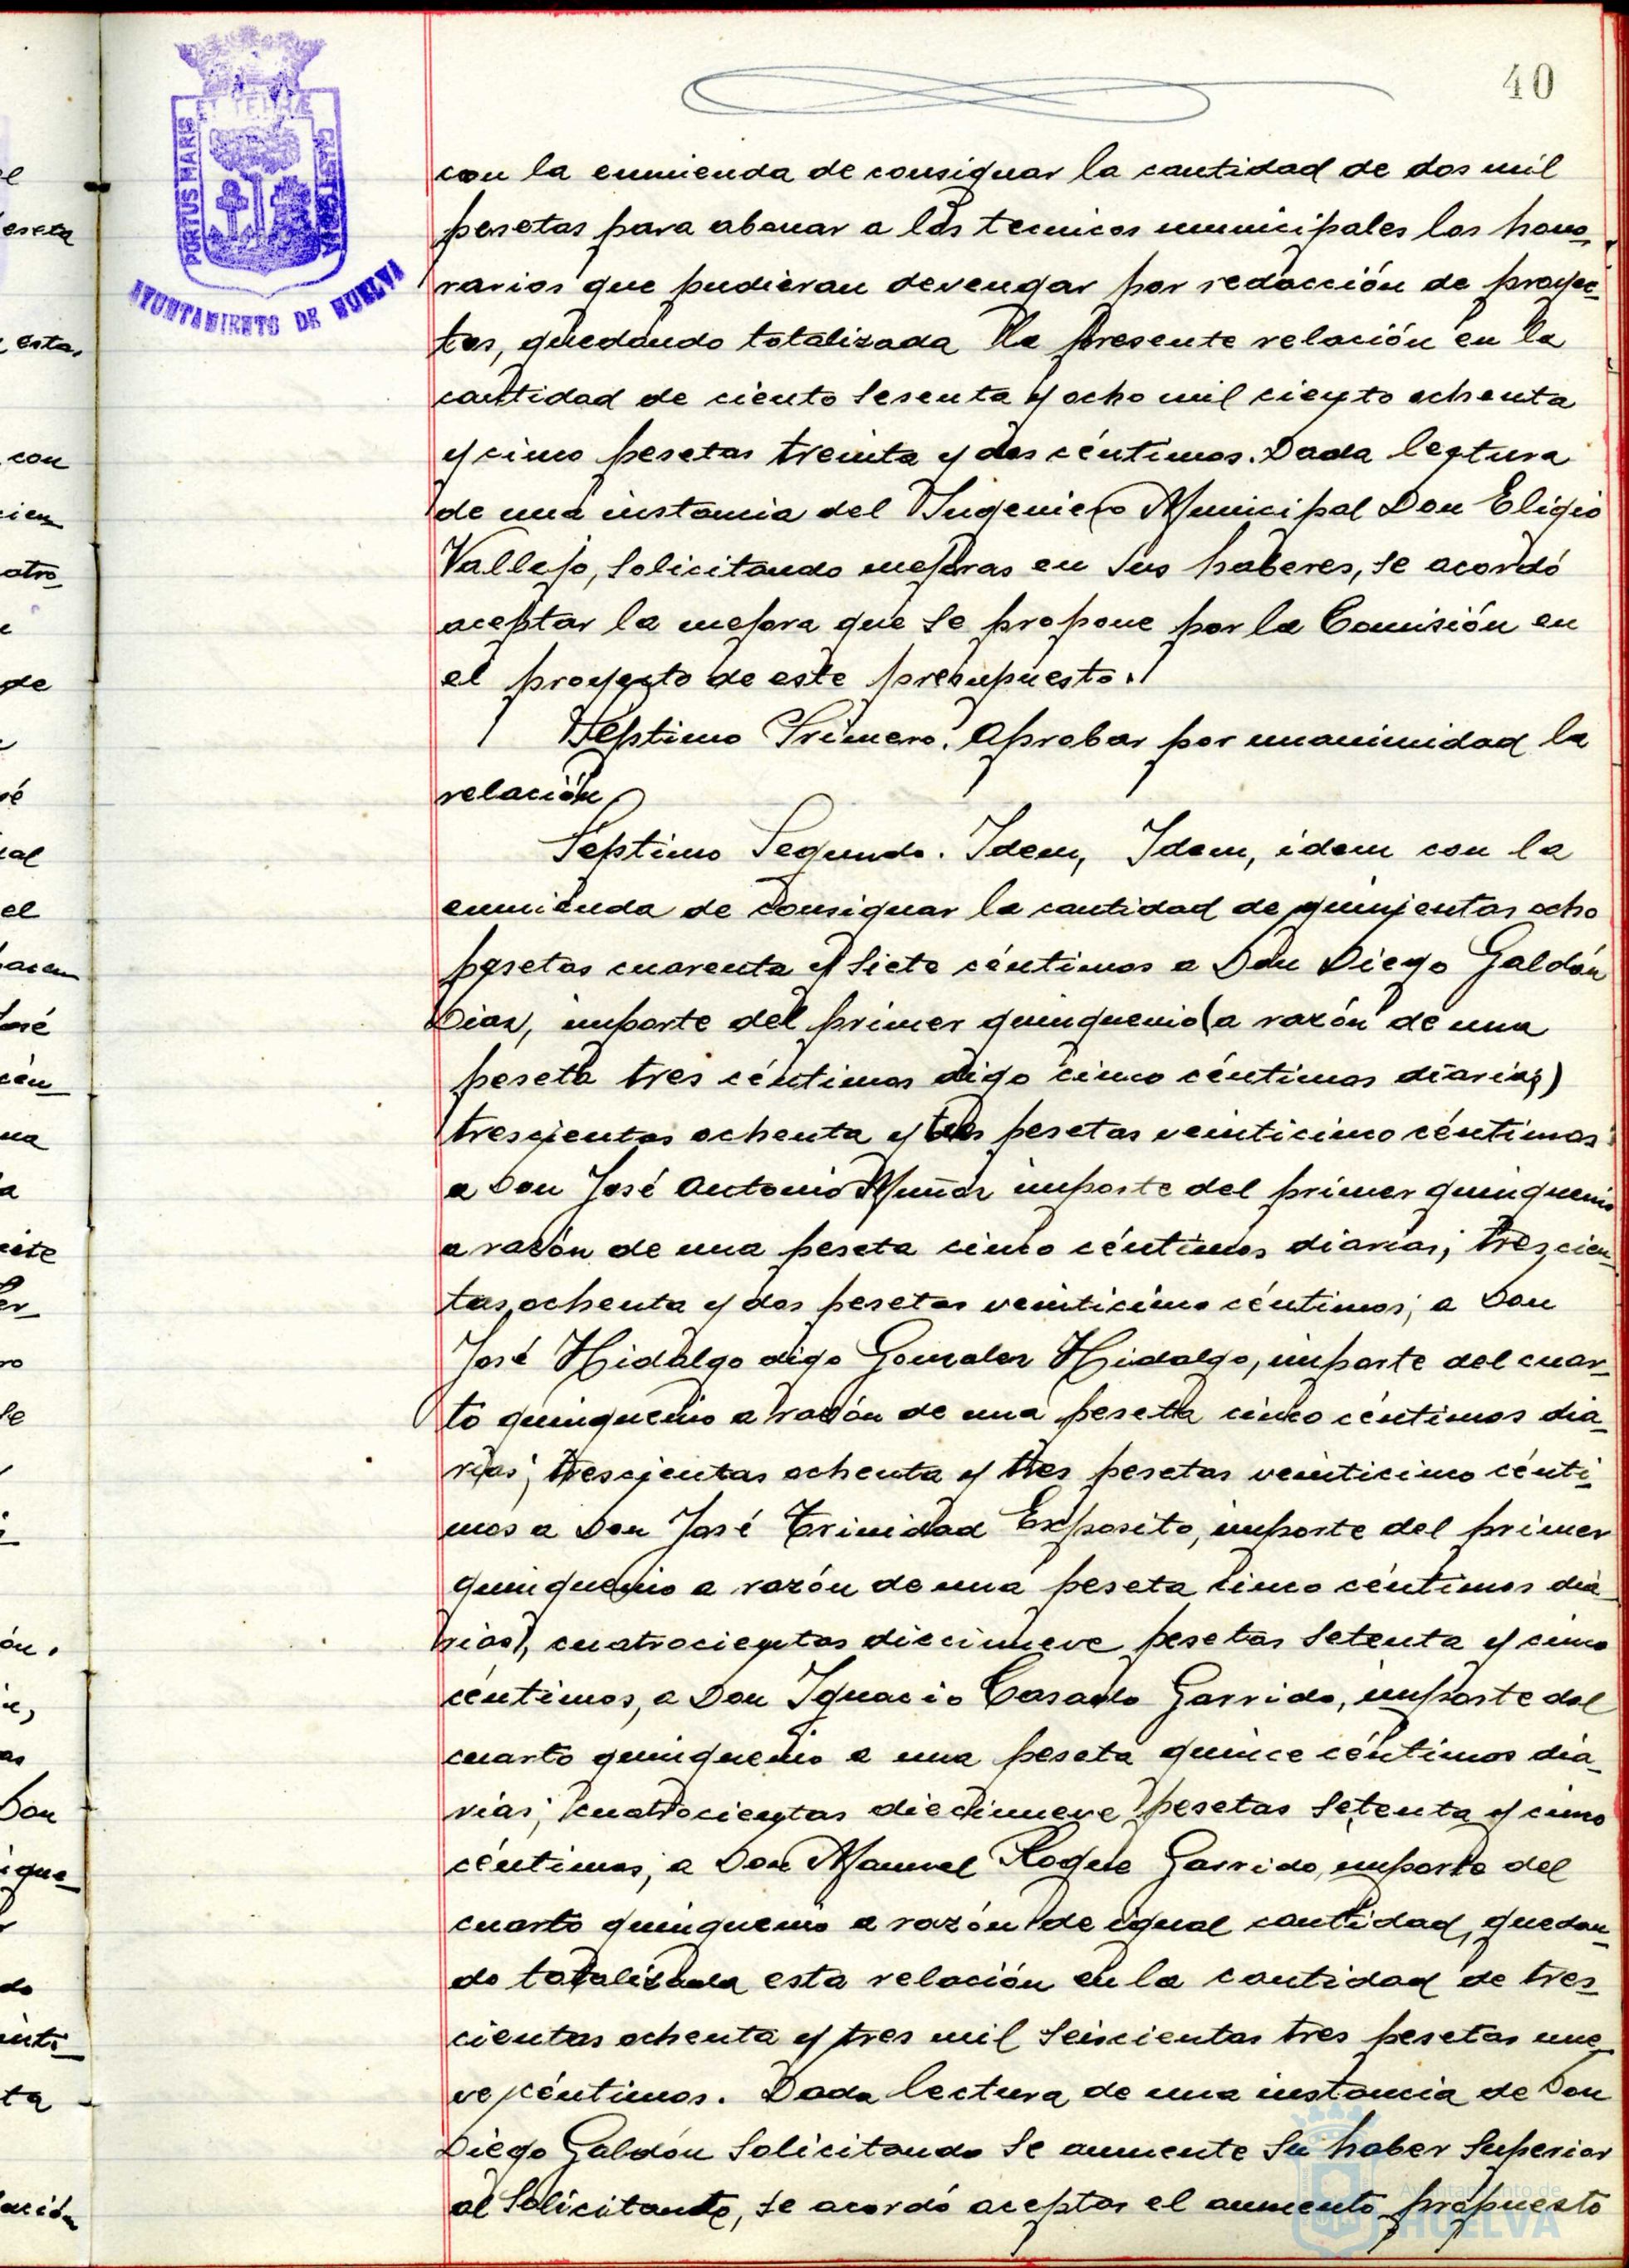 40
PORTUS MARIS
ET TERRÆ
CUSTODIA
AYUNTAMIENTO DE HUELVA
con la enmienda de consignar la cantidad de dos mil
pesetas para abonar a los tecnicos municipales los hono-
rarios que pudieran devengar por redacción de proyec-
tos, quedando totalizada la presente relación en la
cantidad de ciento sesenta y ocho mil ciento ochenta
y cinco pesetas treinta y dos céntimos. Dada lectura
de una instancia del Ingeniero Municipal Don Eligio
Vallejo, solicitando mejoras en sus haberes, se acordó
aceptar la mejora que se propone por la Comisión en
el proyecto de este presupuesto.
Septimo Primero. Aprobar por unanimidad la
relación
Séptimo Segundo. Idem, Idem, idem con la
enmienda de consignar la cantidad de quinientas ocho
pesetas cuarenta y siete céntimos a Don Diego Galdón
Diaz, importe del primer quinquenio (a razón de una
peseta tres céntimos digo cinco céntimos diarias)
trescientas ochenta y tres pesetas veinticinco céntimos
a Don José Antonio Muñoz importe del primer quinquenio
a razón de una peseta cinco céntimos diarias; trescien-
tas ochenta y dos pesetas veinticinco céntimos; a Don
José Hidalgo digo Gonzalez Hidalgo, importe del cuar-
to quinquenio a razón de una peseta cinco céntimos dia-
rias; trescientas ochenta y tres pesetas veinticinco cénti-
mos a Don José Trinidad Exposito, importe del primer
quinquenio a razón de una peseta cinco céntimos dia-
rias), cuatrocientas diecinueve pesetas setenta y cinco
céntimos, a Don Ignacio Casado Garrido, importe del
cuarto quinquenio a una peseta quince céntimos dia-
rias; cuatrocientas diecinueve pesetas setenta y cinco
céntimos; a Don Manuel Roque Garrido, importe del
cuarto quinquenio a razón de igual cantidad, quedan-
do totalizada esta relación en la cantidad de tres-
cientas ochenta y tres mil seiscientas tres pesetas nue-
ve céntimos. Dada lectura de una instancia de Don
Diego Galdón solicitando se aumente su haber superior
al solicitante, se acordó aceptar el aumento propuesto
Ayuntamiento de
HUELVA